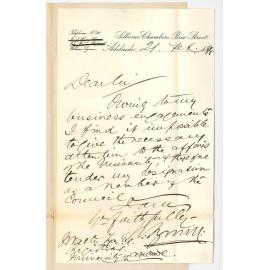 Selborne Chambers, Pirie Street,
Adelaide, 21 Feb.
Dear Sir
Owing to my
business engagements
I find it impossible
to give the necessary
attention to the affairs
of the University & therefore
tender my resignation
as a member of the
Council
I am
Yrs faithfully
Registrar
University